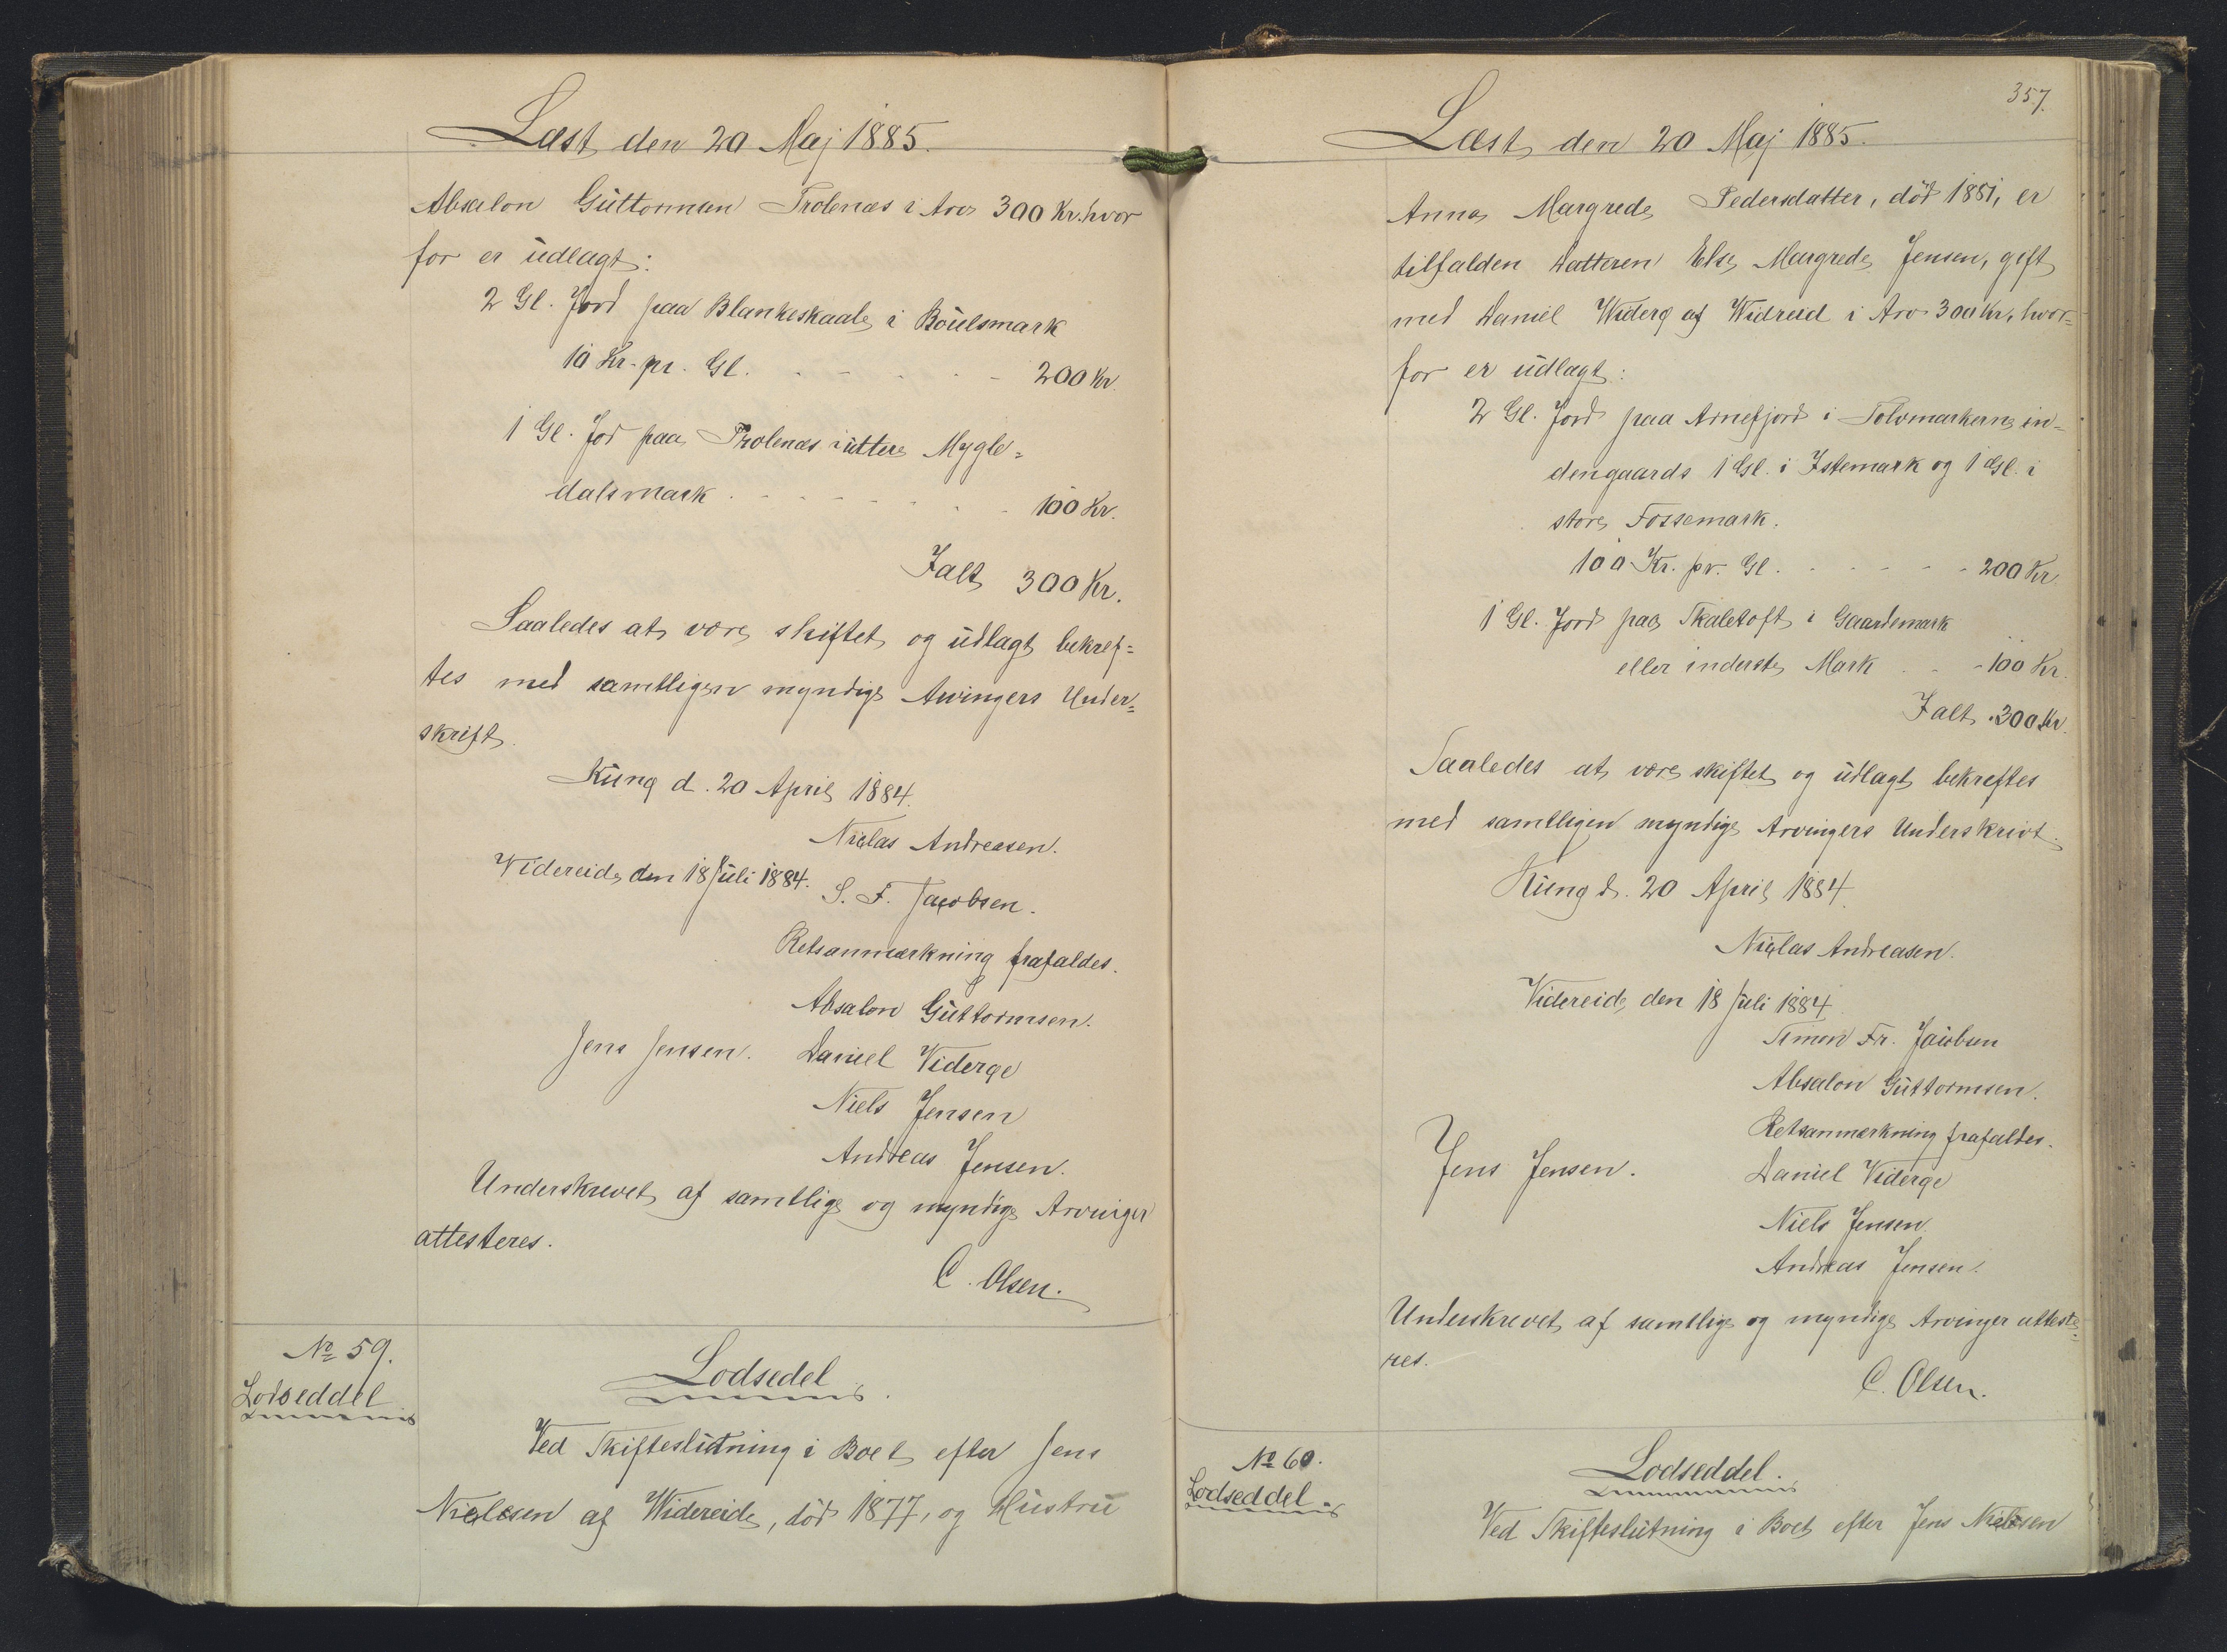 Læst den 20 Maj 1885.
Absalon Guttormsen Trolenæs i Arv 300 Kr. hvor
for er udlagt:
2 Gl. Jord paa Blankeskaale i Böulsmark
10 Kr. pr. Gl. - - - - - 200 Kr
1 Gl. Jod paa Trolenæs i uttere Mygle=
dalsmark - - - - - 100 Kr.
Ialt 300 Kr.
Saaledes at være skiftet og udlagt bekref=
tes med samtligen myndige Arvingers Under=
skrift.
Kung d. 20 April 1884.
Niclas Andreasen.
Videreide den 18 Juli 1884.
S. F. Jacobsen.
Retsanmærkning frafaldes.
Absalon Guttormsen.
Jens Jensen. Daniel Viderge
Niels Jensen
Andreas Jensen.
Underskrevet af samtlige og myndige Arvinger
attesteres.
C. Olsen.
No 59.
Lodseddel
Lodsedel.
Ved Skifteslutning i Boet efter Jens
Nielsen af Widereide, död 1877, og Hustru
357.
Læst den 20 Maj 1885.
Anna Margrede Pedersdatter, död 1881, er
tilfalden Datteren Else Margrede Jensen, gift
med Daniel Widerg af Widreid i Arv 300 Kr, hvor=
for er udlagt:
2 Gl. Jord paa Arnefjord i Tolvmarkerne in=
dengaards 1 Gl. i Istemark og 1 Gl. i
store Fossemark.
100 Kr. pr. Gl. - - - - - 200 Kr.
1 Gl. Jord paa Skaletoft i Gaardemark
eller inderste Mark - - - 100 Kr.
Ialt 300 Kr.
Saaledes at være skiftet og udlagt bekreftes
med samtligen myndige Arvingers Underskrivt.
Kung d. 20 April 1884.
Niclas Andreasen.
Videreide den 18 Juli 1884.
Simon Fr. Jacobsen
Absalon Guttormsen.
Retsanmærkning frafaldes.
Jens Jensen. Daniel Viderge
Niels Jensen.
Andreas Jensen.
Underskrevet af samtlige og myndige Arvinger atteste=
res.
C. Olsen.
No 60.
Lodseddel.
Lodseddel.
Ved Skifteslutning i Boet efter Jens Nielsen